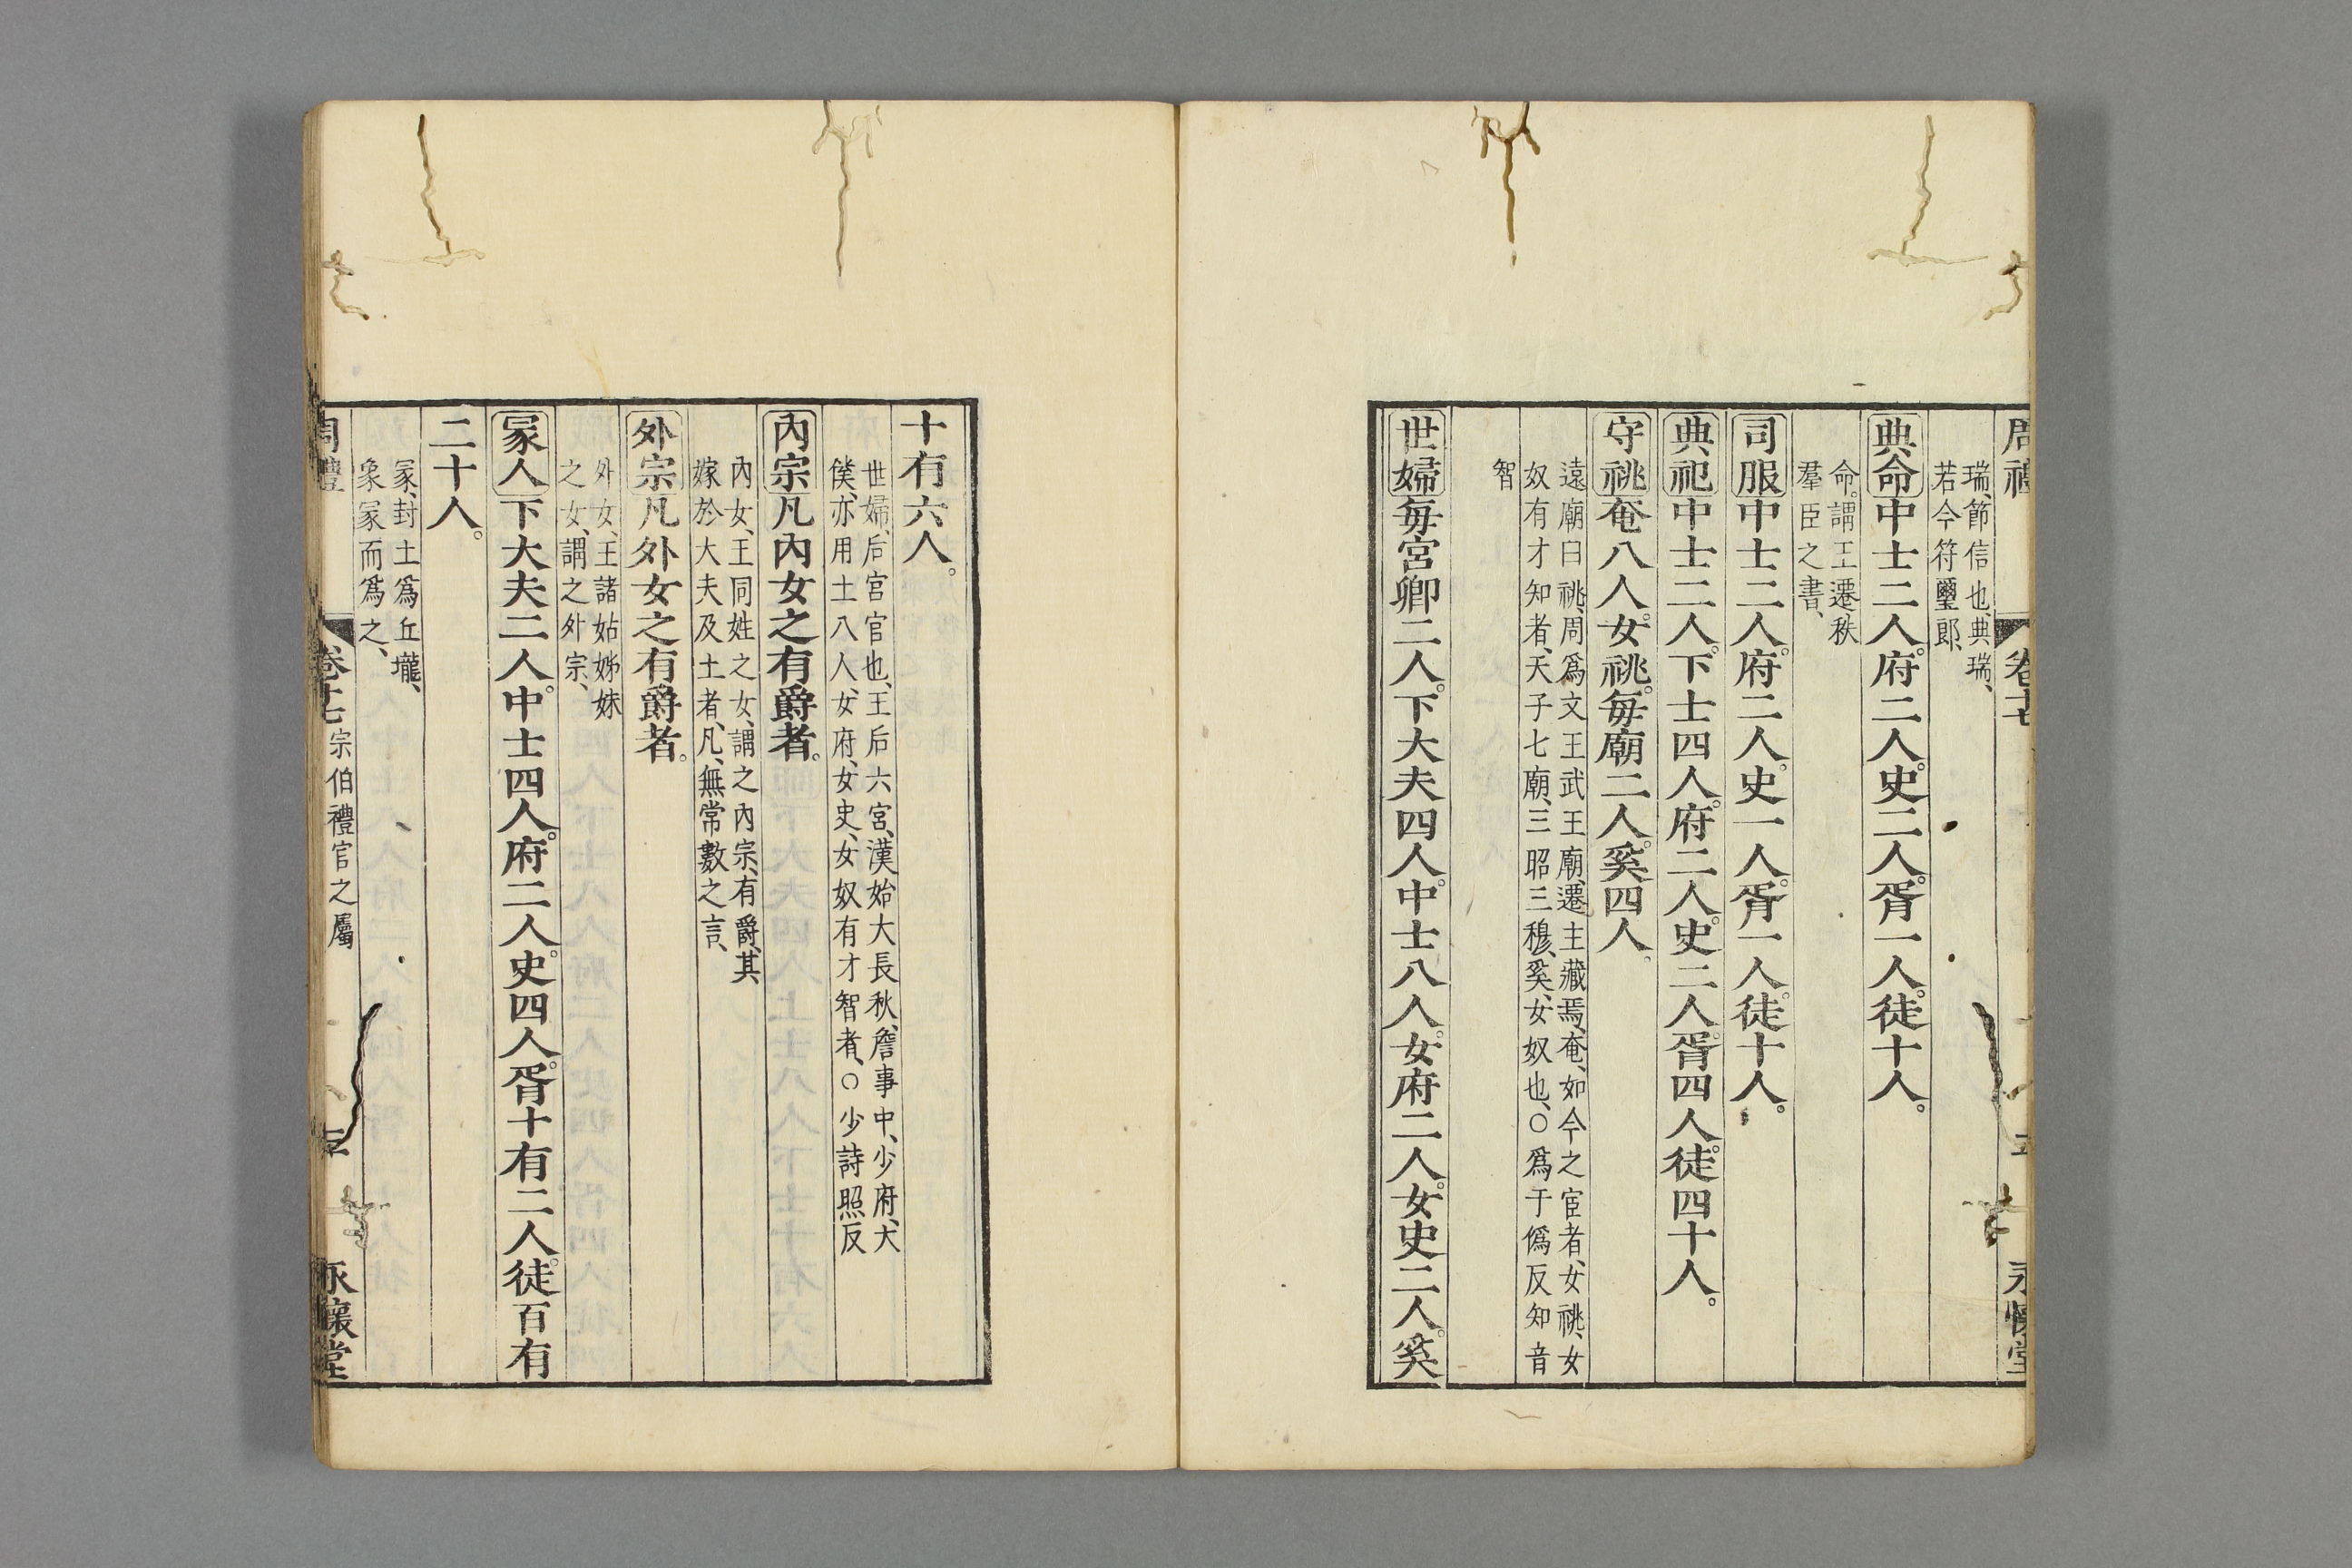 瑞、節信也、典瑞、
若今符璽郎、
典命中士二人。府二人。史二人。胥一人。徒十人。
命。謂王遷秩
羣臣之書、
司服中士二人。府二人。史一人。胥一人。徒十人。
典祀中士二人。下士四人。府二人。史二人。胥四人。徒四十人。
守祧奄八人。女祧。每廟二人。奚四人。
遠廟曰祧、周爲文王武王廟、遷主藏焉、奄、如今之宦者、女祧、女
奴有才知者、天子七廟、三昭三穆、奚、女奴也、○爲于僞反知音
智
世婦每宮卿二人。下大夫四人。中士八人。女府二人。女史二人。奚
十有六人。
世婦、后宮官也、王后六宮、漢始大長秋、詹事中、少府、大
僕、亦用士八人、女府、女史、女奴有才智者、○少詩照反
內宗凡內女之有爵者。
內女、王同姓之女、謂之內宗、有爵、其
嫁於大夫及士者、凡、無常數之言、
外宗凡外女之有爵者。
外女、王諸姑姊妹
之女、謂之外宗、
冢人下大夫二人。中士四人。府二人。史四人。胥十有二人。徒百有
二十人。
冢、封土爲丘壠、
象冢而爲之、
周禮 卷十七 宗伯禮官之屬 永懷堂